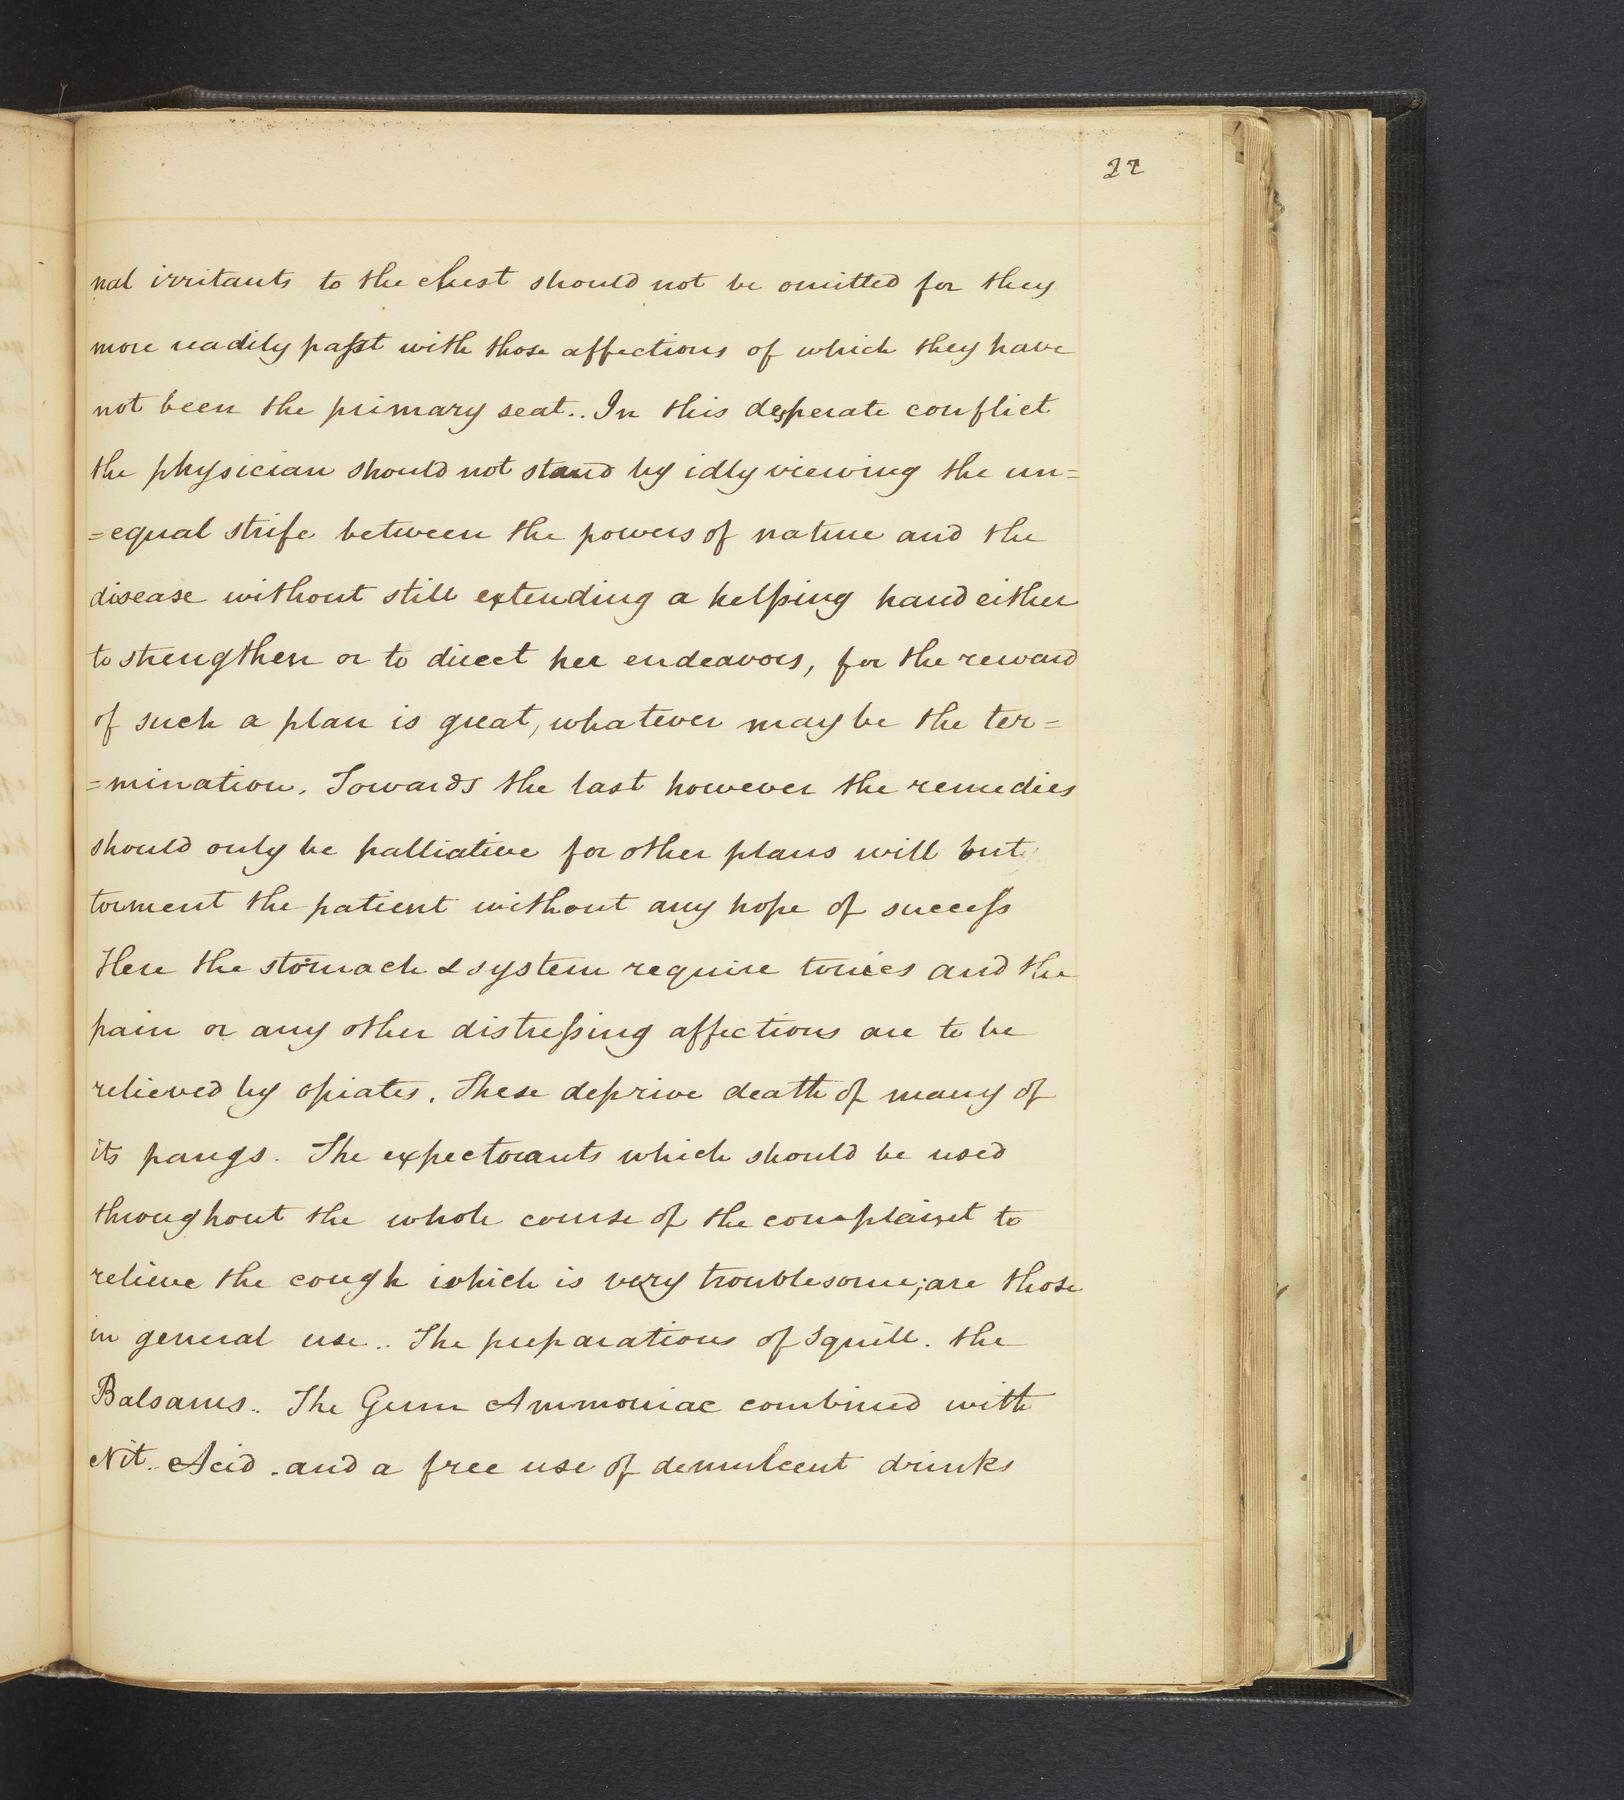 22
nal irritants to the chest should not be omitted for they
more readily passt with those affections of which they have
not been the primary seat.. In this desperate conflict
the physician should not stand by idly viewing the un=
=equal strife between the powers of nature and the
disease without still extending a helping hand either
to strengthen or to direct her endeavors, for the reward
of such a plan is great, whatever may be the ter=
=mination. Towards the last however the remedies
should only be palliative for other plans will but
torment the patient without any hope of success
Here the stomach & system require tonics and the
pain or any other distressing affections are to be
relieved by opiates. These deprive death of many of
its pangs. The expectorants which should be used
throughout the whole course of the complaint to
relieve the cough which is very troublesome; are those
in general use.. The preparations of Squill. the
Balsams.. The Gum Ammoniac combined with
Nit.. Acid. and a free use of demulcent drinks